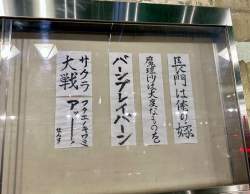 長門は俺の嫁
魔理沙は大変なものを
バーンブレイバーン
サクラ
大戦
フタエノキワミ
アッー